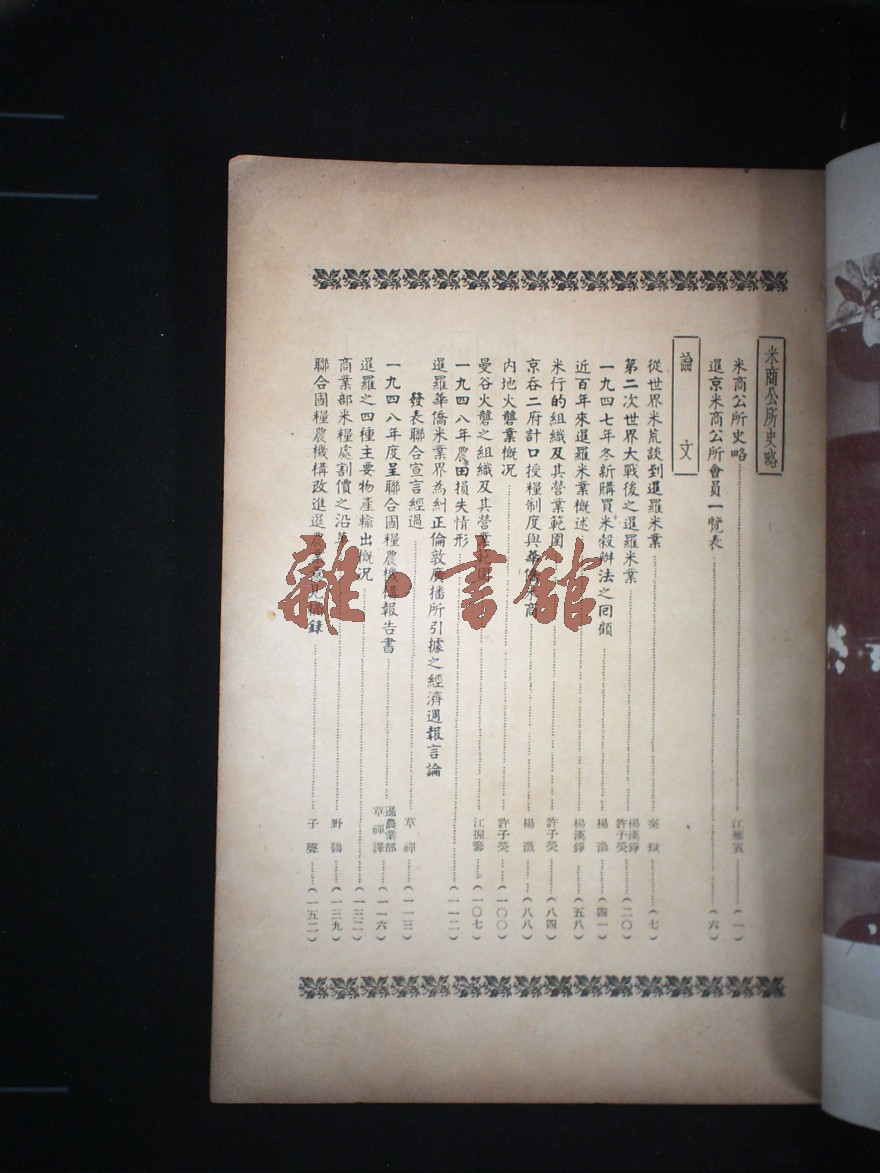 米商公所史略
米商公所史略 江 賓 (一)
暹京米商公所會員一覽表 (六)
論文
從世界米荒談到暹羅米業 秦 (七)
第二次世界大戰後之暹羅米業 楊漢錚 許子熒 (二〇)
一九四七年冬新購買米穀辦法之回顧 楊澂 (四一)
近百年來暹羅米業概述 楊漢錚 (五八)
米行的組織及其營業範圍 許子熒 (八四)
京吞二府計口授糧制度與華僑米商 楊澂 (八八)
內地火礱業概況 許子熒 (一〇〇)
曼谷火礱之組織及其營業範圍 江握籌 (一〇七)
一九四八年農田損失情形 (一一二)
暹羅華僑米業界為糾正倫敦廣播所引據之經濟週報言論
發表聯合宣言經過 草禪 (一一三)
一九四八年度呈聯合國糧農機構報告書 暹農業部 草禪譯 (一一六)
暹羅之四種主要物產輸出概况 (一三二)
商業部米糧處割價之沿革 野鶴 (一三九)
聯合國糧農機構改進暹農業 錄 子 (一五二)
雜·書館